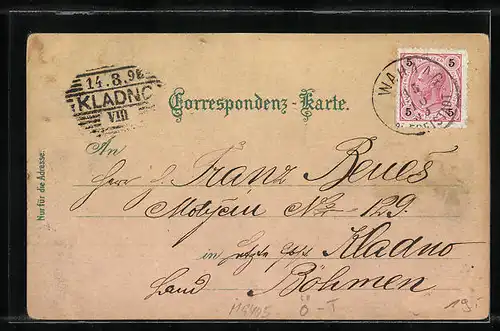 14.8.98
KLADNO
VIII
5 5
5 5
Correspondenz-Karte.
Nur für die Adresse.
An
Herr J. Franz Beneš
Motyčín No 129.
in letzte Post Kladno
Land Böhmen
Ö-T
195